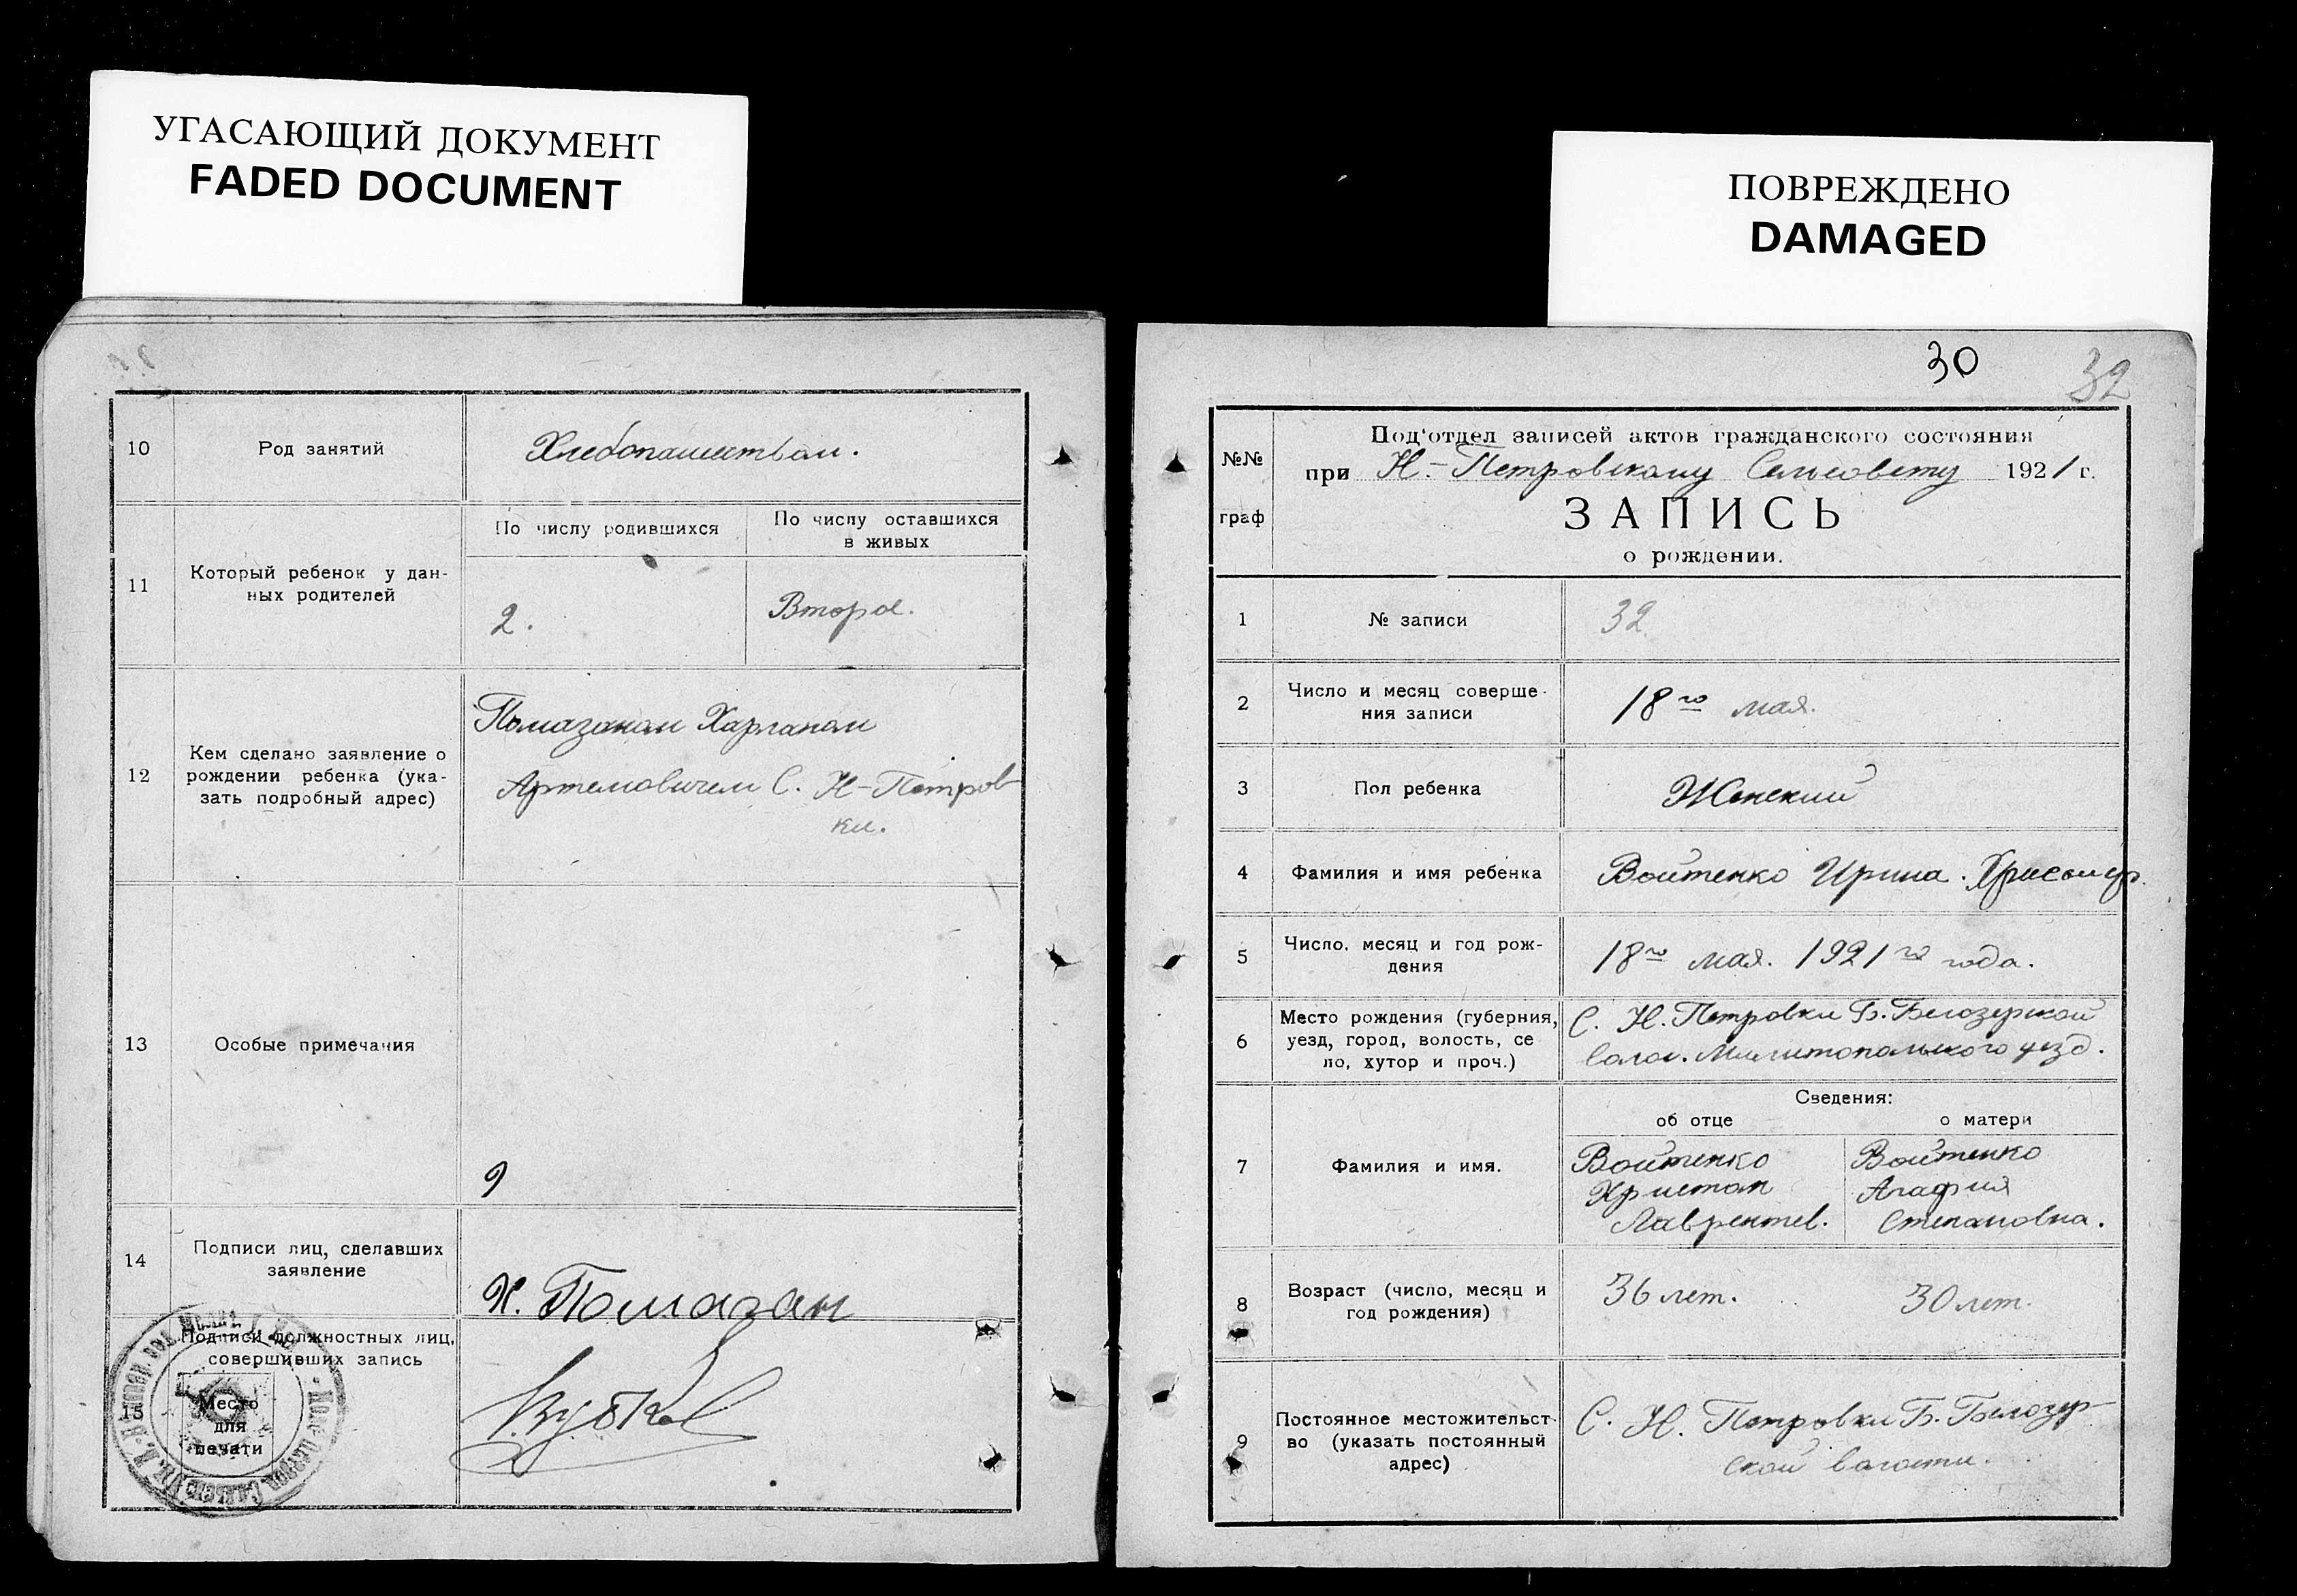 УГАСАЮЩИЙ ДОКУМЕНТ
FADED DOCUMENT
ПОВРЕЖДЕНО
DAMAGED
10
Род занятий
Хлебопашеством.
11
Который ребенок у дан-
ных родителей
По числу родившихся
По числу оставшихся
в живых
2.
Второе.
12
Кем сделано заявление о
рождении ребенка (ука-
зать подробный адрес)
Помазаном Харланом
Артемовичем С. Н-Петров
ки.
13
Особые примечания
9
14
Подписи лиц, сделавших
заявление
Х. Помазан
15
Подписи должностных лиц,
совершивших запись
Место
для
печати
30
32
№№
граф
Под'отдел записей актов гражданского состояния
при Н.-Петровскому Сельсовету 1921 г.
ЗАПИСЬ
о рождении.
1
№ записи
32
2
Число и месяц соверше-
ния записи
18го мая.
3
Пол ребенка
Женский
4
Фамилия и имя ребенка
Войтенко Ирина.
5
Число, месяц и год рож-
дения
18го мая. 1921го года.
6
Место рождения (губерния,
уезд, город, волость, се
ло, хутор и проч.)
С. Н. Петровки Б. Белозерской
волос. Мелитопольского уезд.
Сведения:
об отце
о матери
7
Фамилия и имя.
Войтенко
Христан
Лаврентев.
Войтенко
Агафия
Степановна.
8
Возраст (число, месяц и
год рождения)
36 лет.
30 лет.
9
Постоянное местожительст-
во (указать постоянный
адрес)
С. Н. Петровки Б. Белозер-
ской волости.